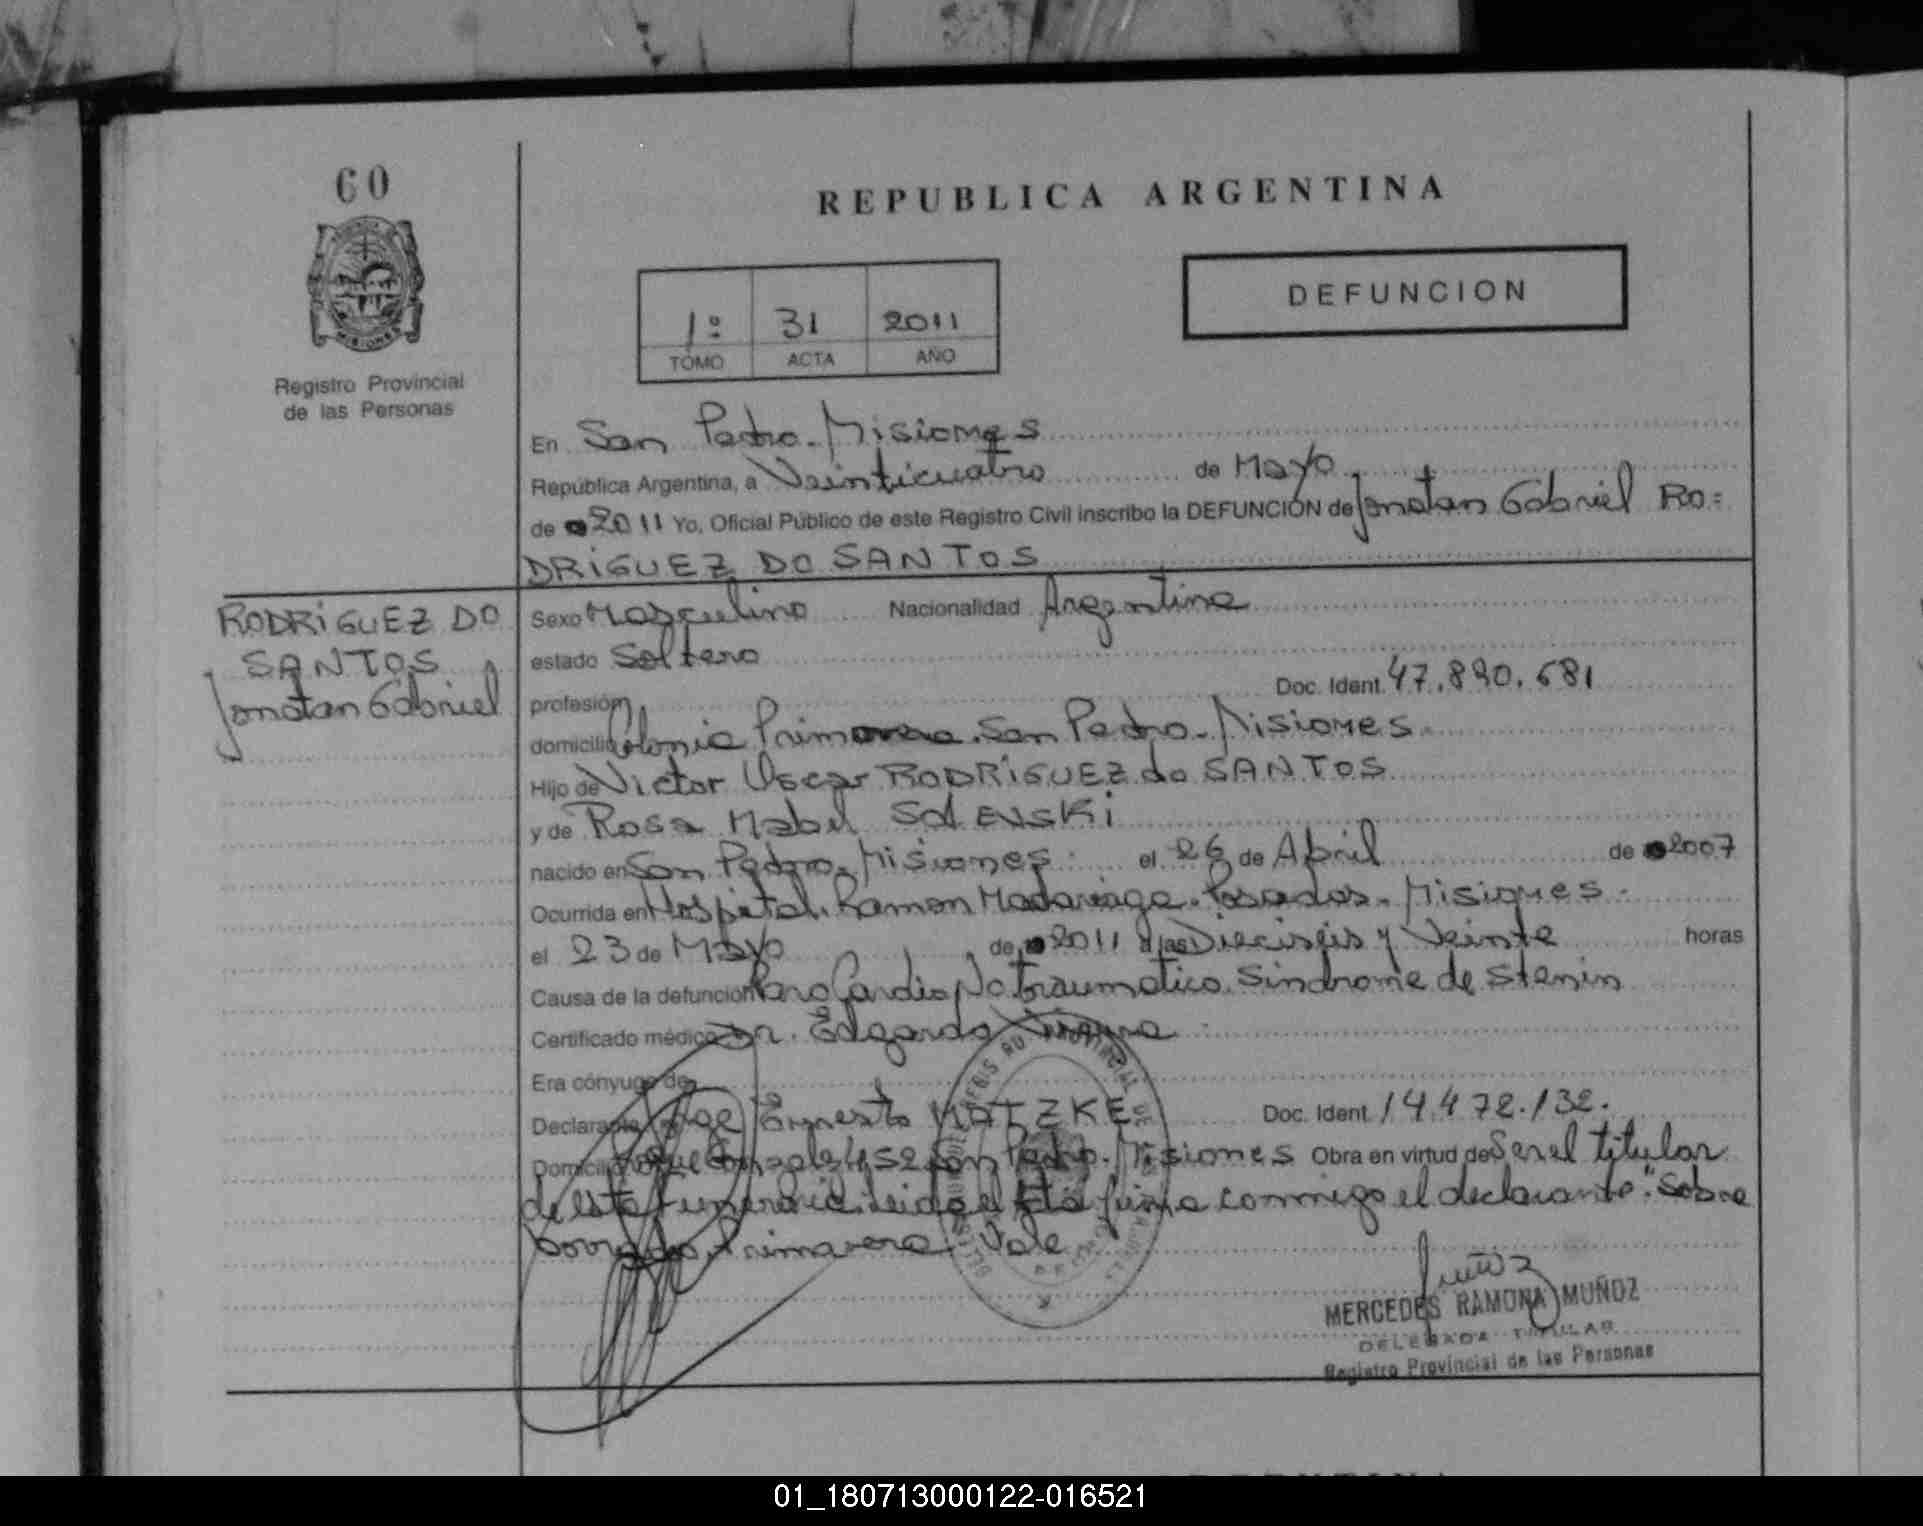 60
REPUBLICA ARGENTINA
MISIONES
Registro Provincial
de las Personas
DEFUNCION
1º 31 2011
TOMO ACTA AÑO
En San Pedro - Misiones
República Argentina, a Veinticuatro de Mayo
de 2011 Yo, Oficial Público de este Registro Civil inscribo la DEFUNCIÓN de Jonatan Gabriel RO=
DRIGUEZ DO SANTOS
RODRIGUEZ DO
SANTOS
Jonatan Gabriel
Sexo Masculino Nacionalidad Argentina
estado Soltero
profesión Doc. Ident. 47.890.681
domicilio Colonia Primavera. San Pedro - Misiones
Hijo de Victor Oscar RODRIGUEZ do SANTOS
y de Rosa Mabel
nacido en San Pedro - Misiones el 26 de Abril de 2007
Ocurrida en Hospital. Ramon Madariaga - Posadas - Misiones
el 23 de Mayo de 2011 a las Dieciseis y Veinte horas
Causa de la defunción Paro Cardio No traumatico. Sindrome de
Certificado médico Dr. Edgardo
Era cónyuge de
Declarante Jorge Ernesto MATZKE Doc. Ident. 14.472.132.
Domicilio San Pedro - Misiones Obra en virtud de Ser el titular
de esta Funeraria. Leida el Acta firma conmigo el declarante. "Sobre
borrado. Primavera. Vale
MERCEDES RAMONA MUÑOZ
DELEGADA TITULAR
Registro Provincial de las Personas
01_180713000122-016521